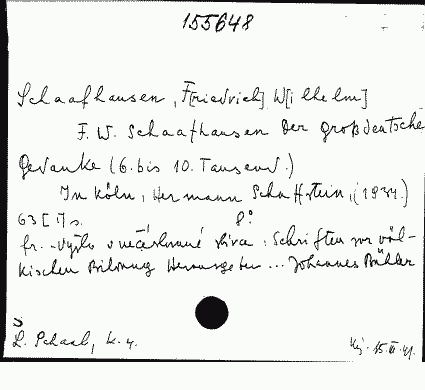 155648
Schaafhausen, F[riedrich] W[ilhelm]
F. W. Schaafhausen Der großdeutsche
Gedanke (6. bis 10. Tausend.)
In Köln, Hermann Schaffstein, (1934.)
63 [1] s. 8°
fr. - Vyšlo v nečíslované : Schriften zur völ-
kischen Bildung Herausgeber ... Johannes Bühler
S
L. Schaab, k. 4.
15. 41.